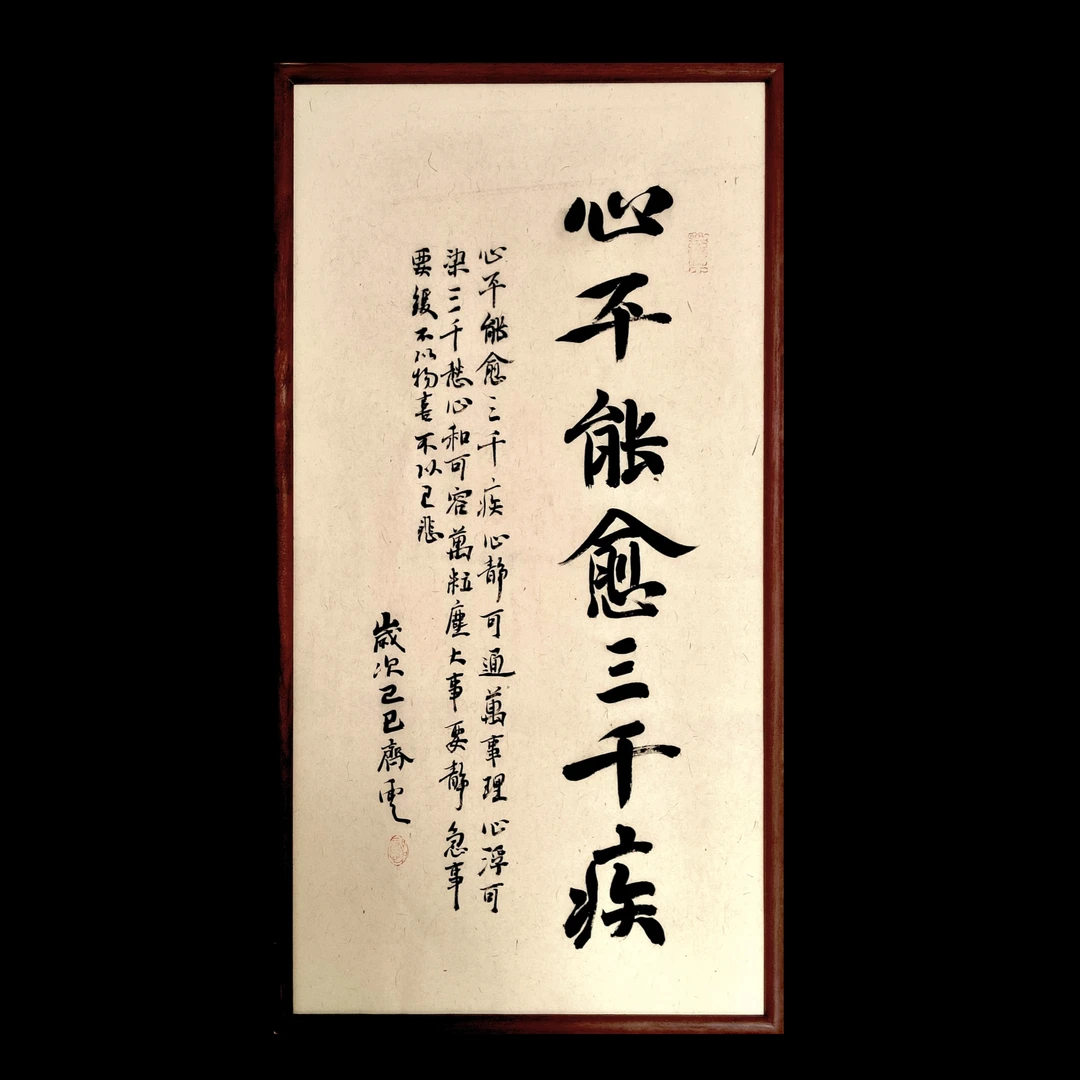 心平能愈三千疾
心平能愈三千疾心静可通萬事理心浮可
染三千愁心和可容萬粒塵大事要静急事
要緩不以物喜不以己悲
歲次己巳齊雲